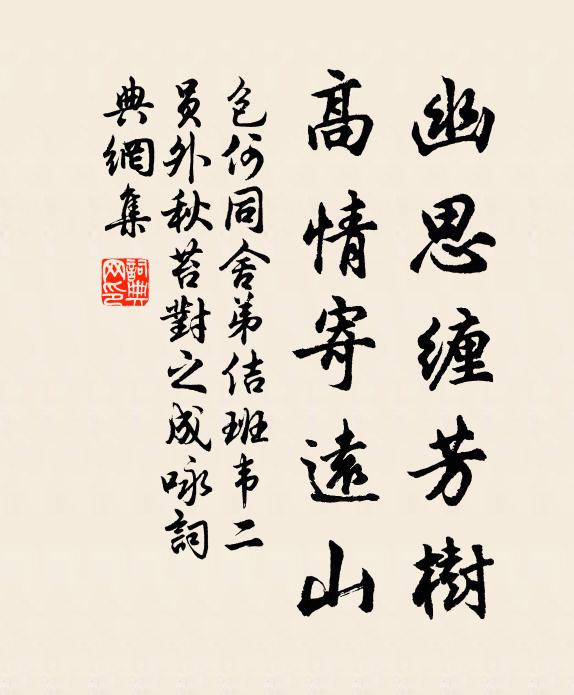 幽思缠芳樹
高情寄遠山
包何同舍弟佶班韦二
員外秋苔對之成咏詞
典網集
詞典
网印